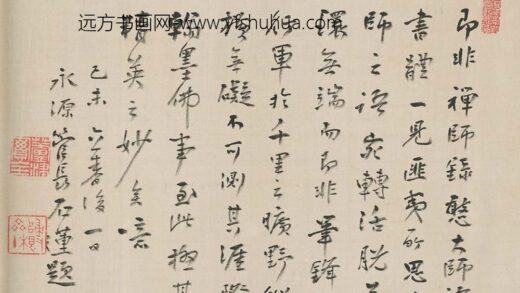 远方书画网www.yfshuhua.com
即非禪師錄憨大師
書體一見匪夷所思
師之語宛轉活脫
環無端而即非筆鋒
軍於千里之曠野
橫無礙不可測其涯際
翰墨佛事至此極其
精英之妙矣噫
己未立春後一日
永源管長石蓮題